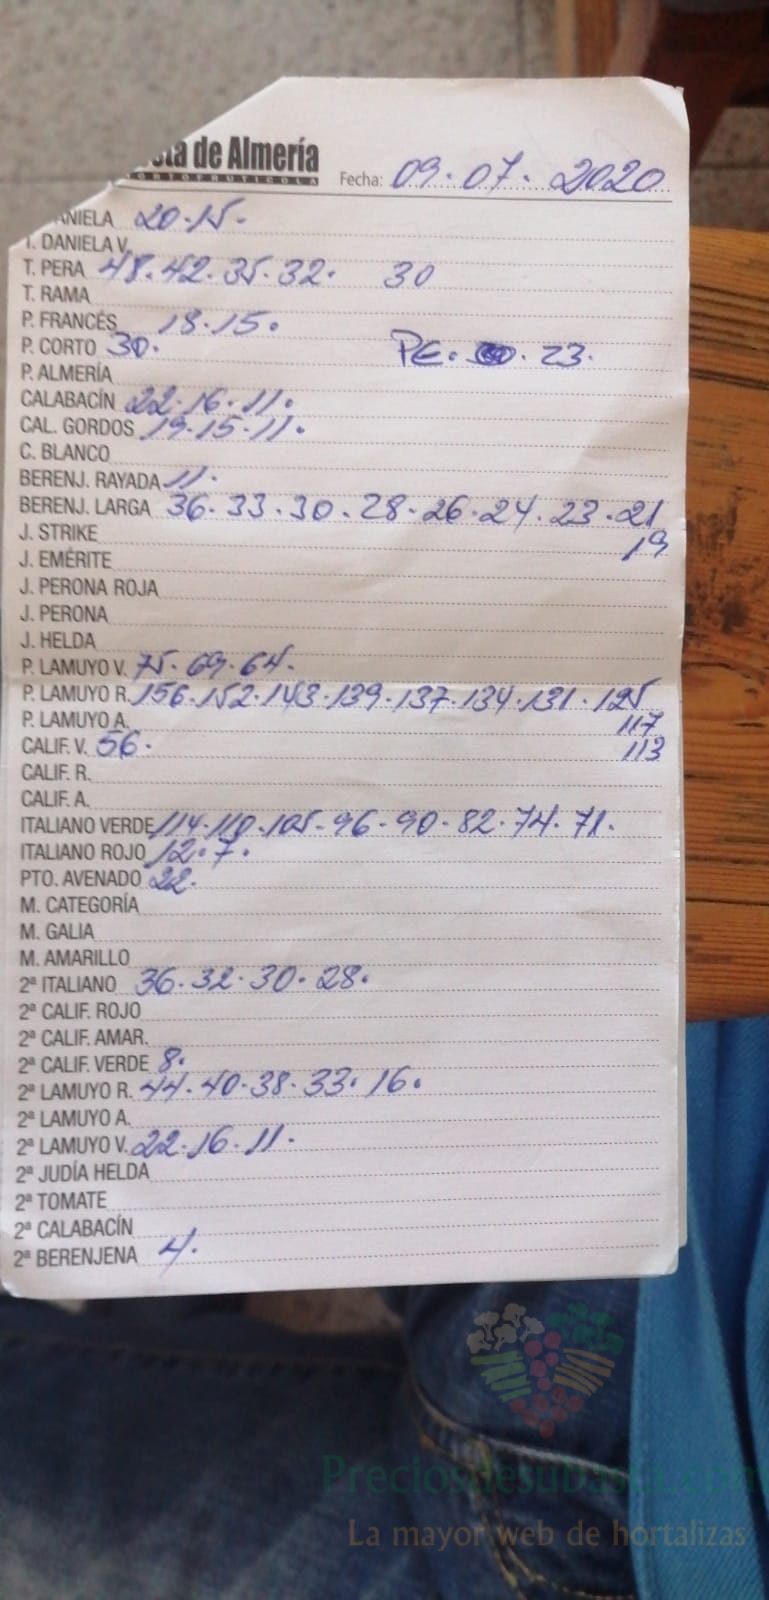 sta de Almería
HORTOFRUTICOLA
Fecha: 09.07.2020
ANIELA 20.15.
T. DANIELA V.
T. PERA 48.42.35.32. 30
T. RAMA
P. FRANCÉS 18.15.
P. CORTO 30. PE. 23.
P. ALMERÍA
CALABACÍN 22.16.11.
CAL. GORDOS 19.15.11.
C. BLANCO
BERENJ. RAYADA 11.
BERENJ. LARGA 36.33.30.28.26.24.23.21
19
J. STRIKE
J. EMÉRITE
J. PERONA ROJA
J. PERONA
J. HELDA
P. LAMUYO V. 75.69.64.
P. LAMUYO R. 156.152.143.139.137.134.131.125
117
113
P. LAMUYO A.
CALIF. V. 56.
CALIF. R.
CALIF. A.
ITALIANO VERDE 114.110.105.96.90.82.74.71.
ITALIANO ROJO 12.7.
PTO. AVENADO 22.
M. CATEGORÍA
M. GALIA
M. AMARILLO
2ª ITALIANO 36.32.30.28.
2ª CALIF. ROJO
2ª CALIF. AMAR.
2ª CALIF. VERDE 8.
2ª LAMUYO R. 44.40.38.33.16.
2ª LAMUYO A.
2ª LAMUYO V. 22.16.11.
2ª JUDÍA HELDA
2ª TOMATE
2ª CALABACÍN
2ª BERENJENA 4.
Preciosdesubasta.com
La mayor web de hortalizas